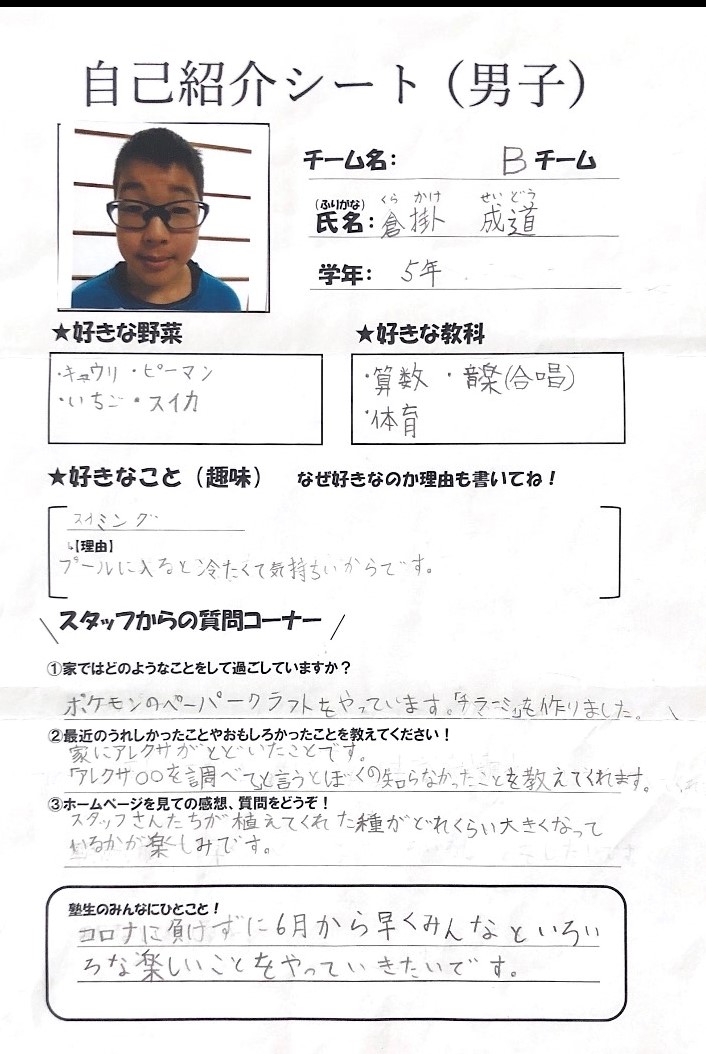 自己紹介シート（男子）
チーム名： B チーム
(ふりがな) くら かけ せい どう
氏名：倉掛 成道
学年： 5年
★好きな野菜
・キュウリ・ピーマン
・いちご・スイカ
★好きな教科
・算数 ・音楽(合唱)
・体育
★好きなこと（趣味） なぜ好きなのか理由も書いてね！
スイミング
↳【理由】
プールに入ると冷たくて気持ちいからです。
＼スタッフからの質問コーナー／
①家ではどのようなことをして過ごしていますか？
ポケモンのペーパークラフトをやっています。「チラーミィ」を作りました。
②最近のうれしかったことやおもしろかったことを教えてください！
家にアレクサがとどいたことです。
アレクサ○○を調べてと言うとぼくの知らなかったことを教えてくれます。
③ホームページを見ての感想、質問をどうぞ！
スタッフさんたちが植えてくれた種がどれくらい大きくなって
いるかが楽しみです。
塾生のみんなにひとこと！
コロナに負けずに6月から早くみんなといろい
ろな楽しいことをやっていきたいです。